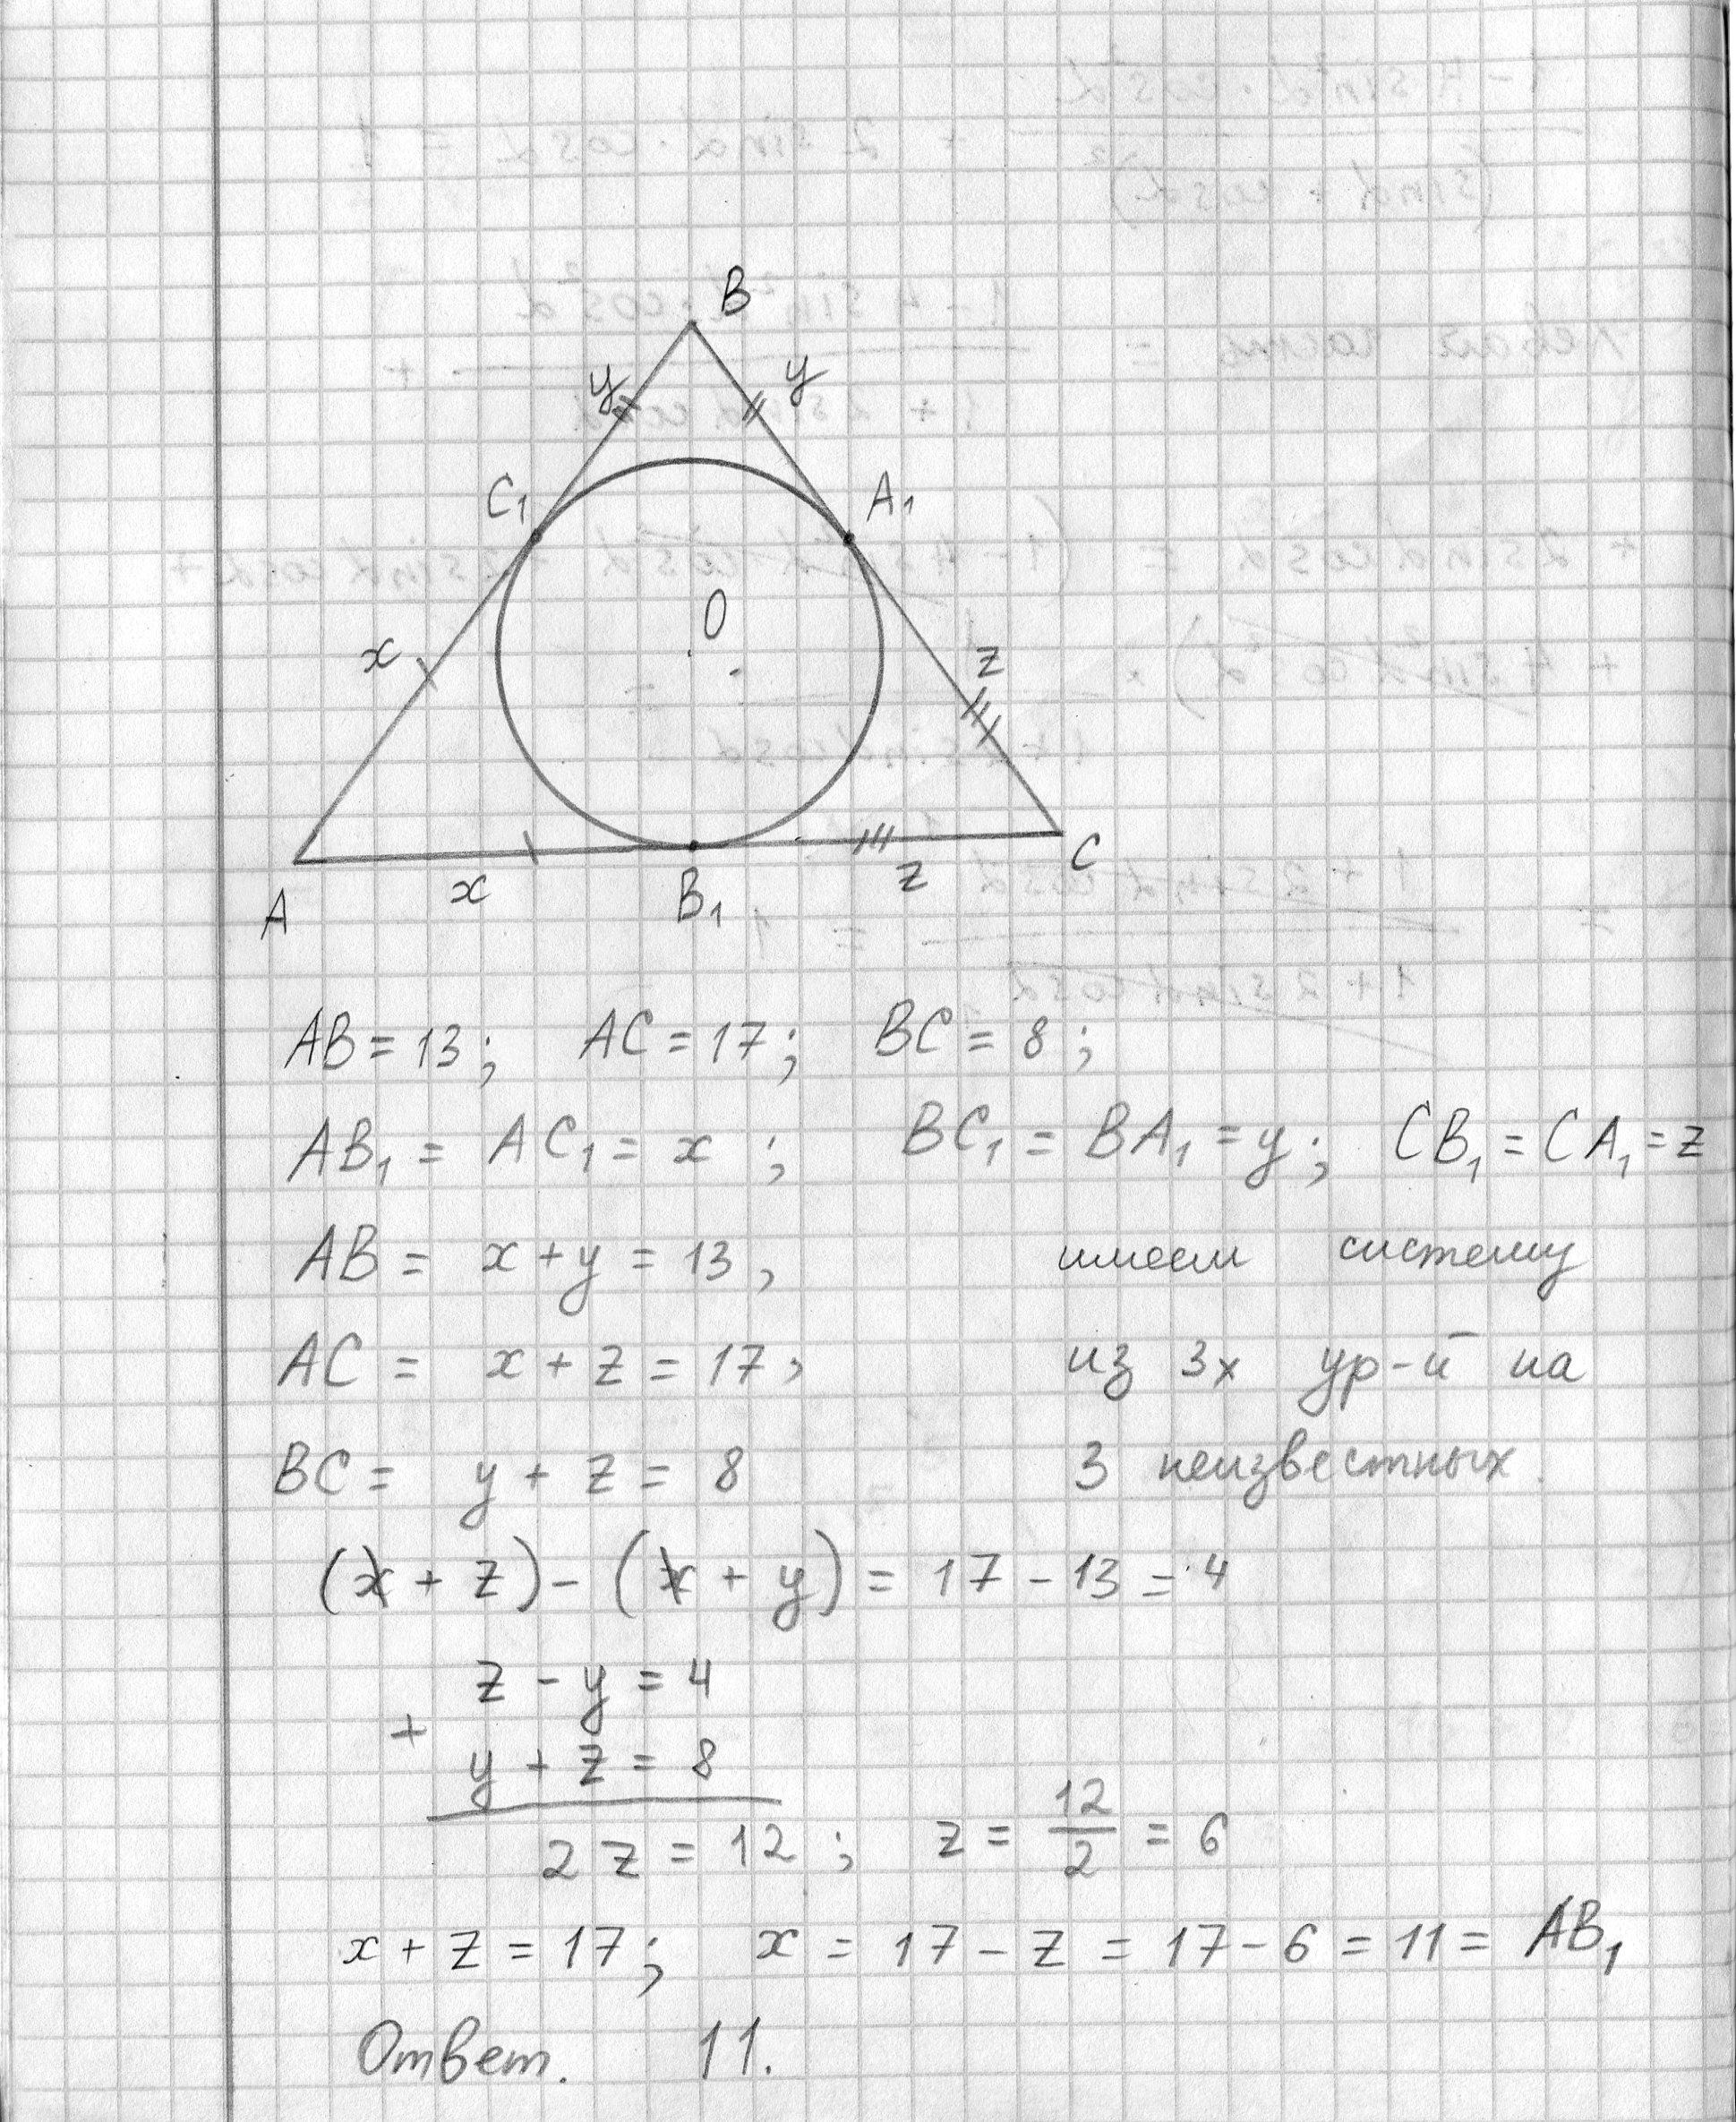 B
y y
C₁ A₁
O
x z
A x B₁ z C
AB = 13; AC = 17; BC = 8;
AB₁ = AC₁ = x; BC₁ = BA₁ = y; CB₁ = CA₁ = z
AB = x + y = 13, имеем систему
AC = x + z = 17, из 3х ур-й на
BC = y + z = 8 3 неизвестных.
(x + z) - (x + y) = 17 - 13 = 4
z - y = 4
+
y + z = 8
2z = 12; z = 12/2 = 6
x + z = 17; x = 17 - z = 17 - 6 = 11 = AB₁
Ответ. 11.